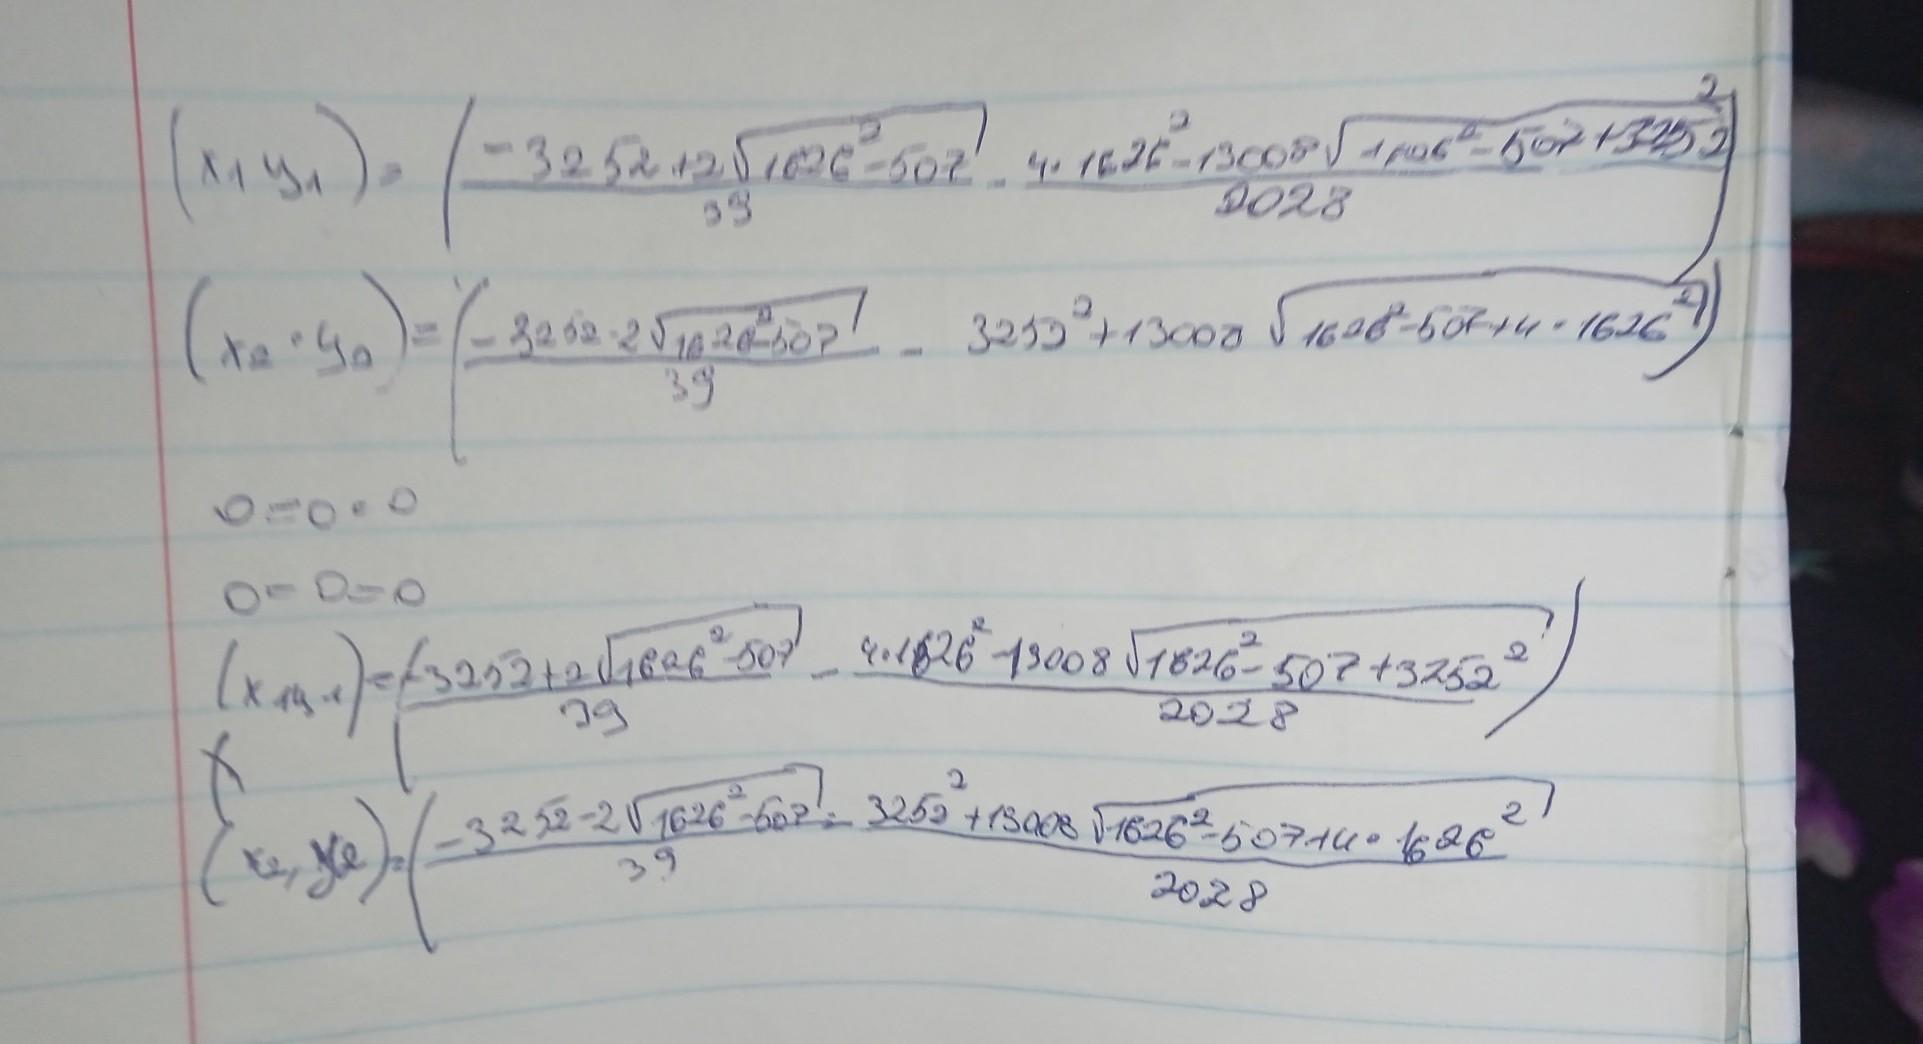 (x₁y₁) = (-3252+2√(1626²-507) / 39 - 4·1626²-13008√(1626²-507+3252²) / 2028)
(x₂·y₂) = (-3252-2√(1626²-507) / 39 - 3252²+13008√(1626²-507+4·1626²))
0=0·0
0=0=0
(x₁y₁) = (-3252+2√(1626²-507) / 39 - 4·1626²-13008√(1626²-507+3252²) / 2028)
(x₂, y₂) = (-3252-2√(1626²-507) / 39 - 3252²+13008√(1626²-507+4·1626²) / 2028